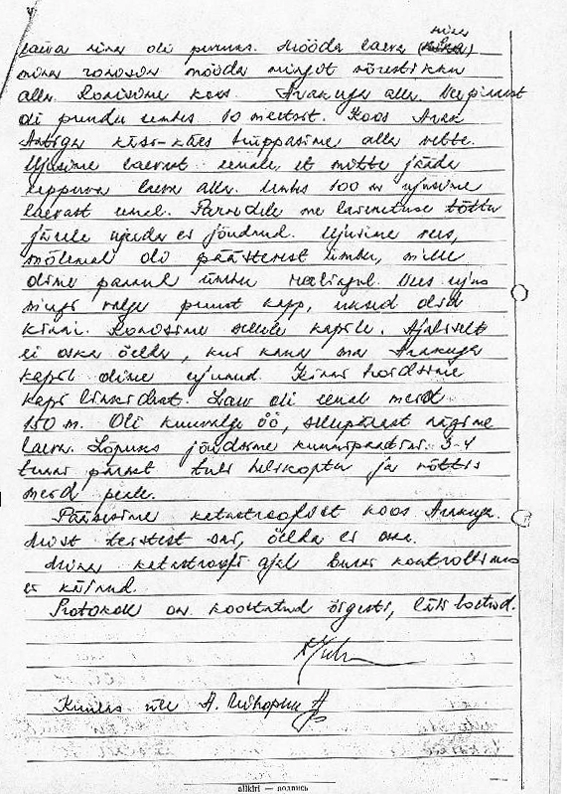 mina
laeva nina oli purunes. Mööda laeva
mina ronisin mööda mingit võrestikku
alla. Ronisime koos Arakuga alla. Veepinnast
oli pundu umbes 10 meetrit. Koos Arak
Antiga käsi-käes hüppasime alla vette.
Ujusime laevast eemale, et mitte jääda
uppuva laeva alla. Umbes 100 m ujusime
laevast eemal. Parvedele me lainetuse tõttu
järele ujuda ei jõudnud. Ujusime vees,
mõlemal oli päästevest ümber, mille
olime pannud ümber reelingul. Vees ujus
mingi valge puust kapp, uksed olid
kinni. Ronisime sellele kapile. Ajaliselt
ei oska öelda, kui kaua ma Arakuga
kapil olime ujunud. Kinni hoidsime
kapi linkidest. Laev oli eemal meist
150 m. Oli kuuvalge öö, sellepärast nägime
laeva. Lõpuks jõudsime kummipaatini. 3-4
tunni pärast tuli helikopter ja võttis
meid peale.
Pääsesime katastroofist koos Arakuga.
Must teistest sai, öelda ei oska.
Mina katastroofi ajal kontrollimas
ei käinud.
Protokoll on koostatud õigesti, läbi loetud.
Kuulas üle A.
allkiri — подпись